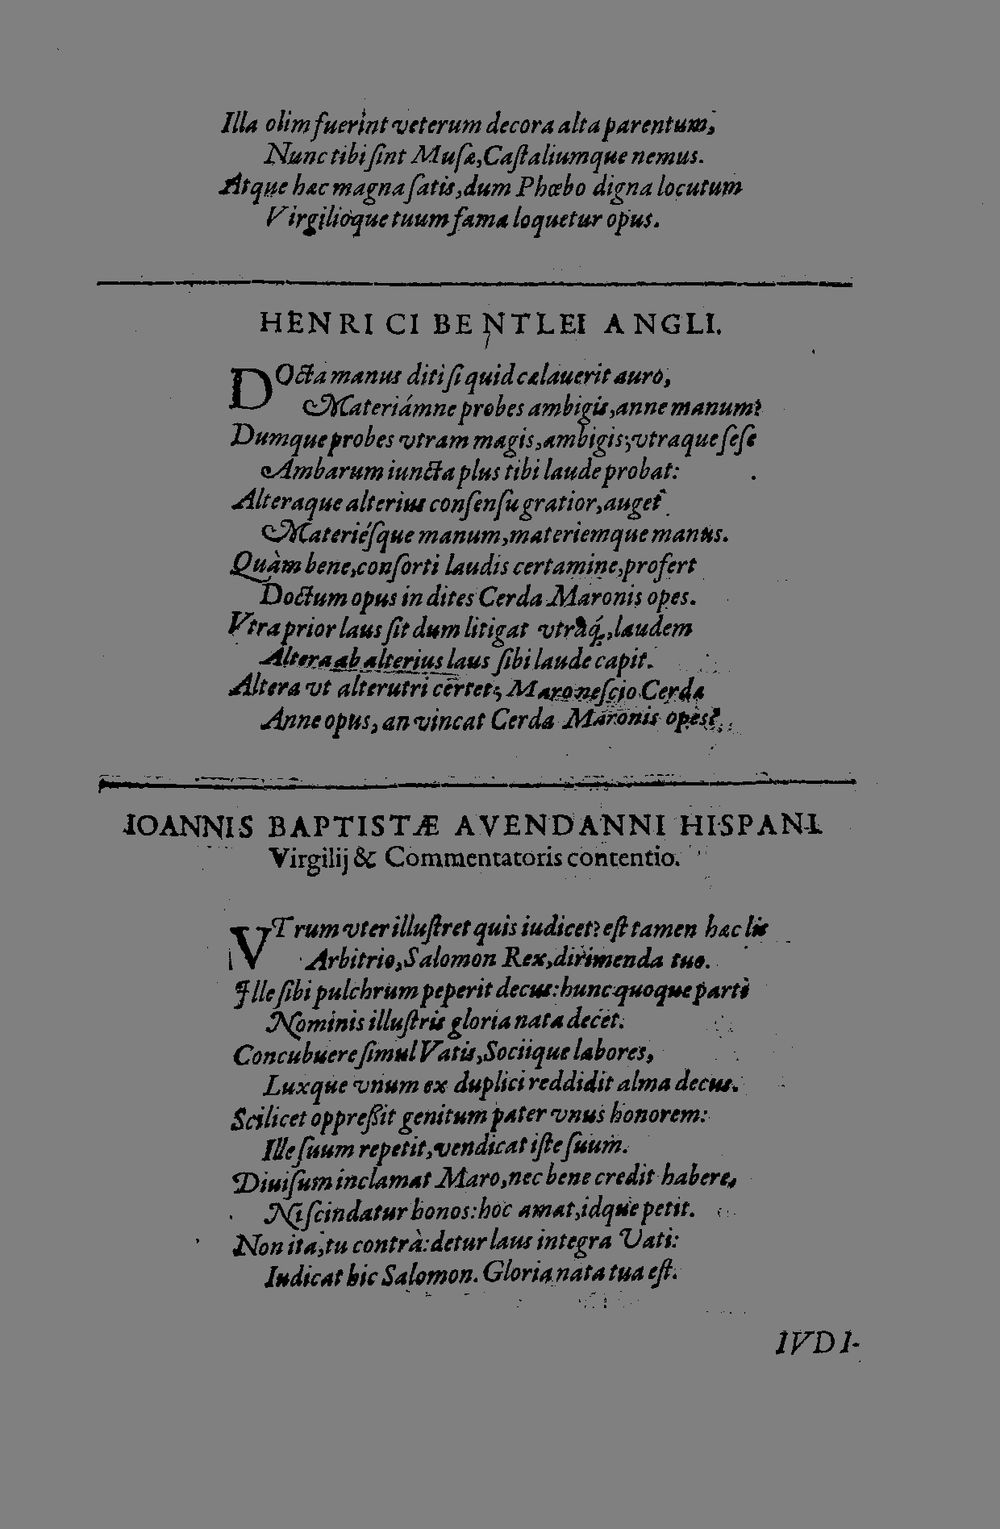 Illa olim fuerint veterum decora alta parentum,
Nunc tibi ſint Muſæ, Caſtaliumque nemus.
Atque hæc magna ſatis, dum Phœbo digna locutum
Virgilioque tuum fama loquetur opus.
HENRICI BENTLEI ANGLI.
DOcta manus diti ſi quid cælauerit auro,
Materiámne probes ambigis, anne manum?
Dumque probes vtram magis, ambigis; vtraque ſeſe
Ambarum iuncta plus tibi laude probat:
Alteraque alterius conſenſu gratior, auget
Materiéſque manum, materiemque manus.
Quàm bene, conſorti laudis certamine, profert
Doctum opus in dites Cerda Maronis opes.
Vtra prior laus ſit dum litigat vtraq́, laudem
Altera ab alterius laus ſibi laude capit.
Altera vt alterutri certet; Maro neſcio Cerda
Anne opus, an vincat Cerda Maronis opes?
IOANNIS BAPTISTÆ AVENDANNI HISPANI.
Virgilij & Commentatoris contentio.
VTrum vter illuſtret quis iudicet? eſt tamen hæc lis
Arbitrio, Salomon Rex, dirimenda tuo.
Ille ſibi pulchrum peperit decus: hunc quoque parti
Nominis illuſtris gloria nata decet.
Concubuere ſimul Vatis, Sociique labores,
Luxque vnum ex duplici reddidit alma decus.
Scilicet oppreſſit genitum pater vnus honorem:
Ille ſuum repetit, vendicat iſte ſuum.
Diuiſum inclamat Maro, nec bene credit habere,
Ni ſcindatur honos: hoc amat, idque petit.
Non ita, tu contrà: detur laus integra Vati:
Iudicat hic Salomon. Gloria nata tua eſt.
IVDI-